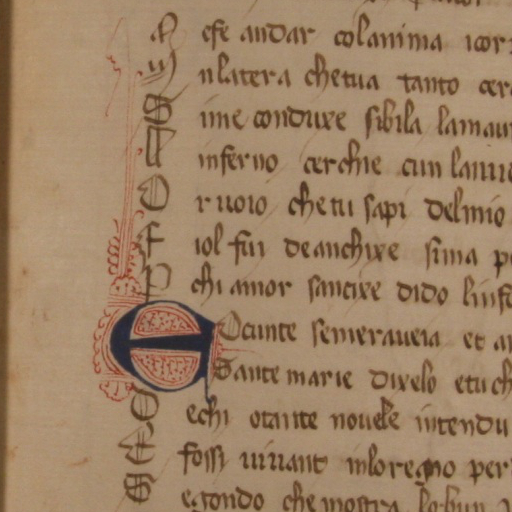 M efe andar colanima icor
M nlatera chetua tanto cer
S ime conduxe sibila lamau
L inferno cerchie cun lauir
O r uoio che tu sapi delmio
F iol fui deanchixe sima p
P chi amor sancixe dido linfe
E Ocunte semeraueia et a
Sante marie dixelo etuch
O echi otante nouele intendu
E fossi uiuant inloregno per
S egondo che mostra lo bun